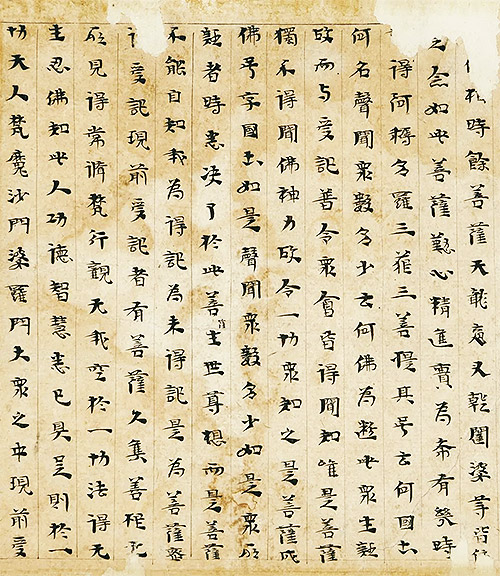 時餘菩薩天龍夜叉乾闥婆等皆
之念如此菩薩懃心精進實為希有幾時
得阿耨多羅三藐三菩提其号云何國土
何名聲聞衆數多少云何佛為斷此衆生疑
故而与受記普令衆會皆得聞知唯是菩薩
獨不得聞佛神力故令一切衆知之是菩薩成
佛号字國土如是聲聞衆數多少如是衆所
疑者時悉決了於此菩薩生世尊想而是菩薩
不能自知我為得記為未得記是為菩薩密
受記現前受記者有菩薩久集善根无
所見得常脩梵行觀无我空於一切法得无
生忍佛知此人功德智慧悉已具足則於一
切天人梵魔沙門婆羅門大衆之中現前受